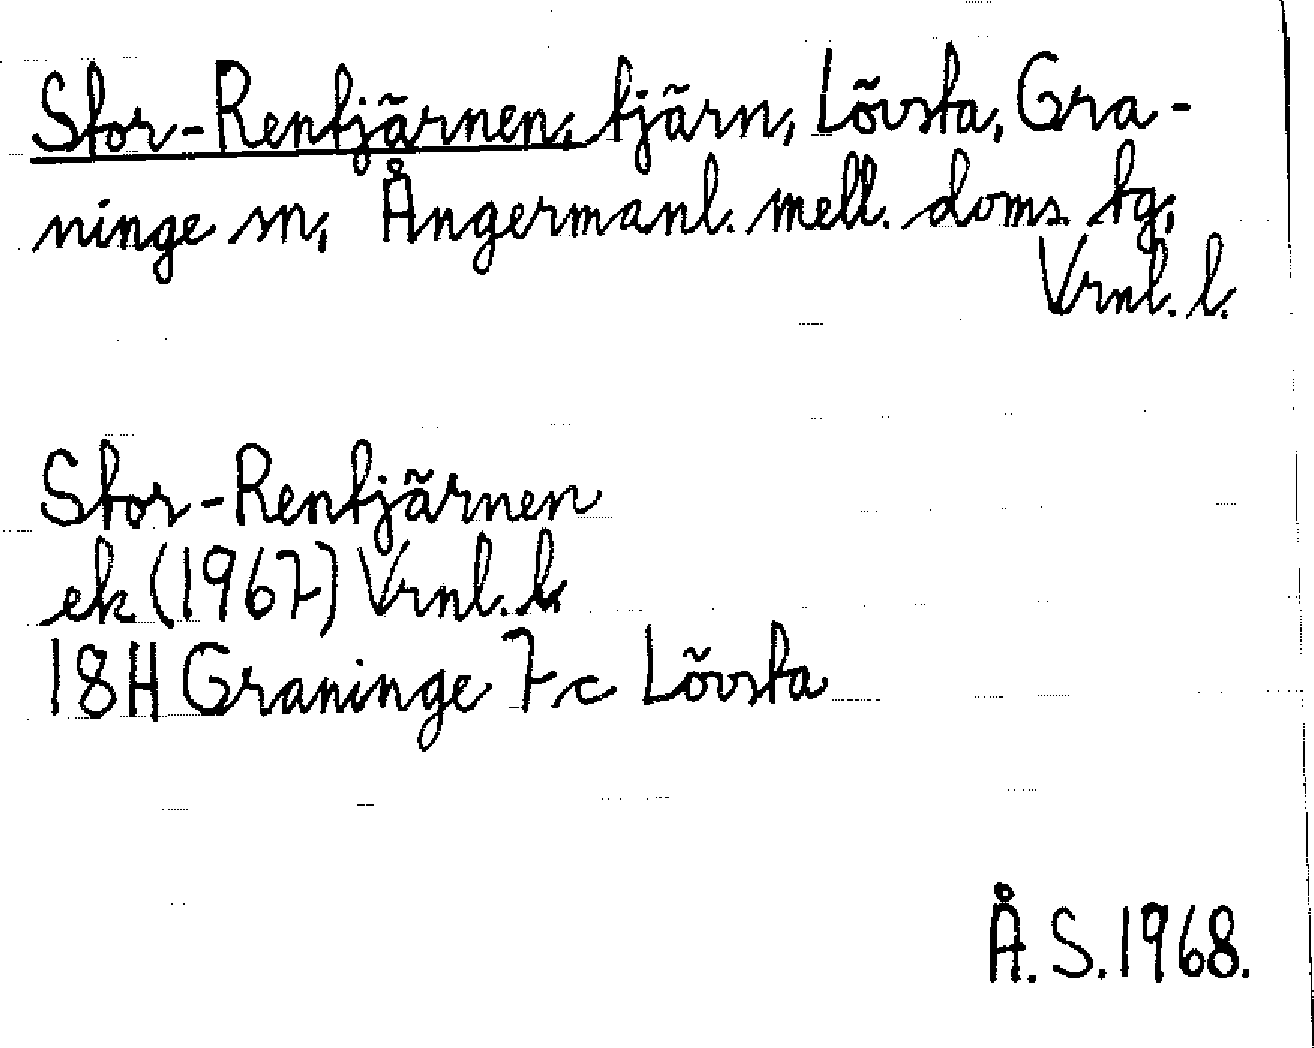 Stor-Rentjärnen, tjärn, Lövsta, Gra-
ninge sn, Ångermanl. mell. doms. tg,
Vrnl. l.
Stor-Rentjärnen
ek (1967) Vrnl. l.
18H Graninge 7c Lövsta
Å. S. 1968.